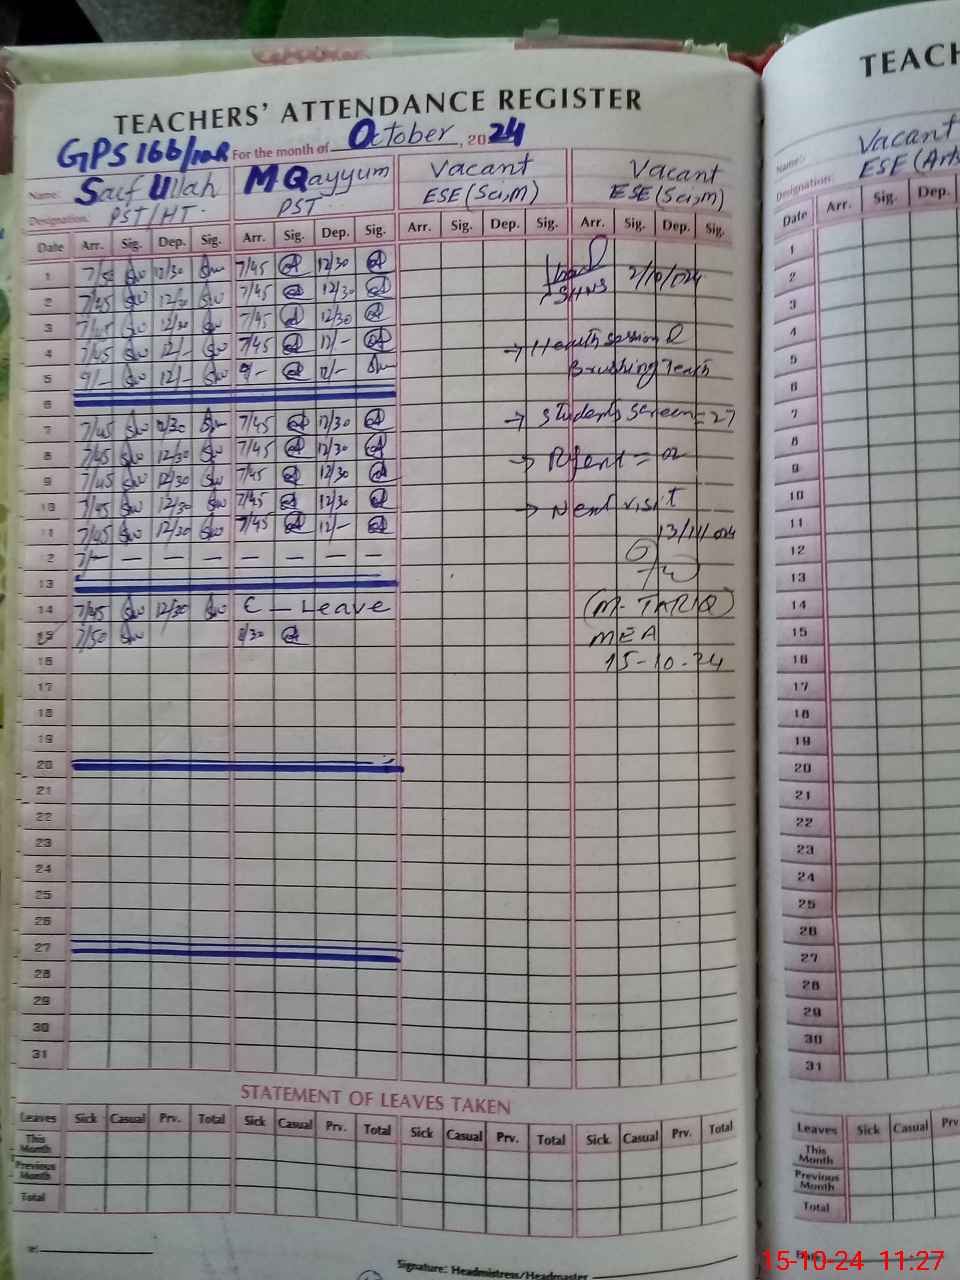 TEACHERS' ATTENDANCE REGISTER
GPS 166/10R For the month of October, 2024
Name: Saif Ullah M Qayyum Vacant Vacant
Designation: PST/HT. PST ESE (Sci,M) ESE (Sci,M)
Date Arr. Sig. Dep. Sig. Arr. Sig. Dep. Sig. Arr. Sig. Dep. Sig. Arr. Sig. Dep. Sig.
1 7/50 12/30 7/45 12/30
2 7/45 12/30 7/45 12/30 2/10/024
3 7/45 12/30 7/45 12/30
4 7/45 12/- 7/45 12/- → Health session
5 9/- 12/- 9/- 12/- Brushing Teath
6
7 7/45 12/30 7/45 12/30 → Students Screen = 27
8 7/45 12/30 7/45 12/30
9 7/45 12/30 7/45 12/30
10 7/45 12/30 7/45 12/30 → Next visit
11 7/45 12/30 7/45 12/- 13/11/024
12 — — — — — — —
13
14 7/45 12/30 C - Leave (M. TARIQ)
15 7/50 8/30 MEA
16 15-10-24
17
18
19
20
21
22
23
24
25
26
27
28
29
30
31
STATEMENT OF LEAVES TAKEN
Leaves Sick Casual Prv. Total Sick Casual Prv. Total Sick Casual Prv. Total Sick Casual Prv. Total
This Month
Previous Month
Total
Signature: Headmistress/Headmaster
TEACH
Name: Vacant
Designation: ESE (Arts
Date Arr. Sig. Dep.
1
2
3
4
5
6
7
8
9
10
11
12
13
14
15
16
17
18
19
20
21
22
23
24
25
26
27
28
29
30
31
Leaves Sick Casual Prv
This Month
Previous Month
Total
Date
15-10-24 11:27